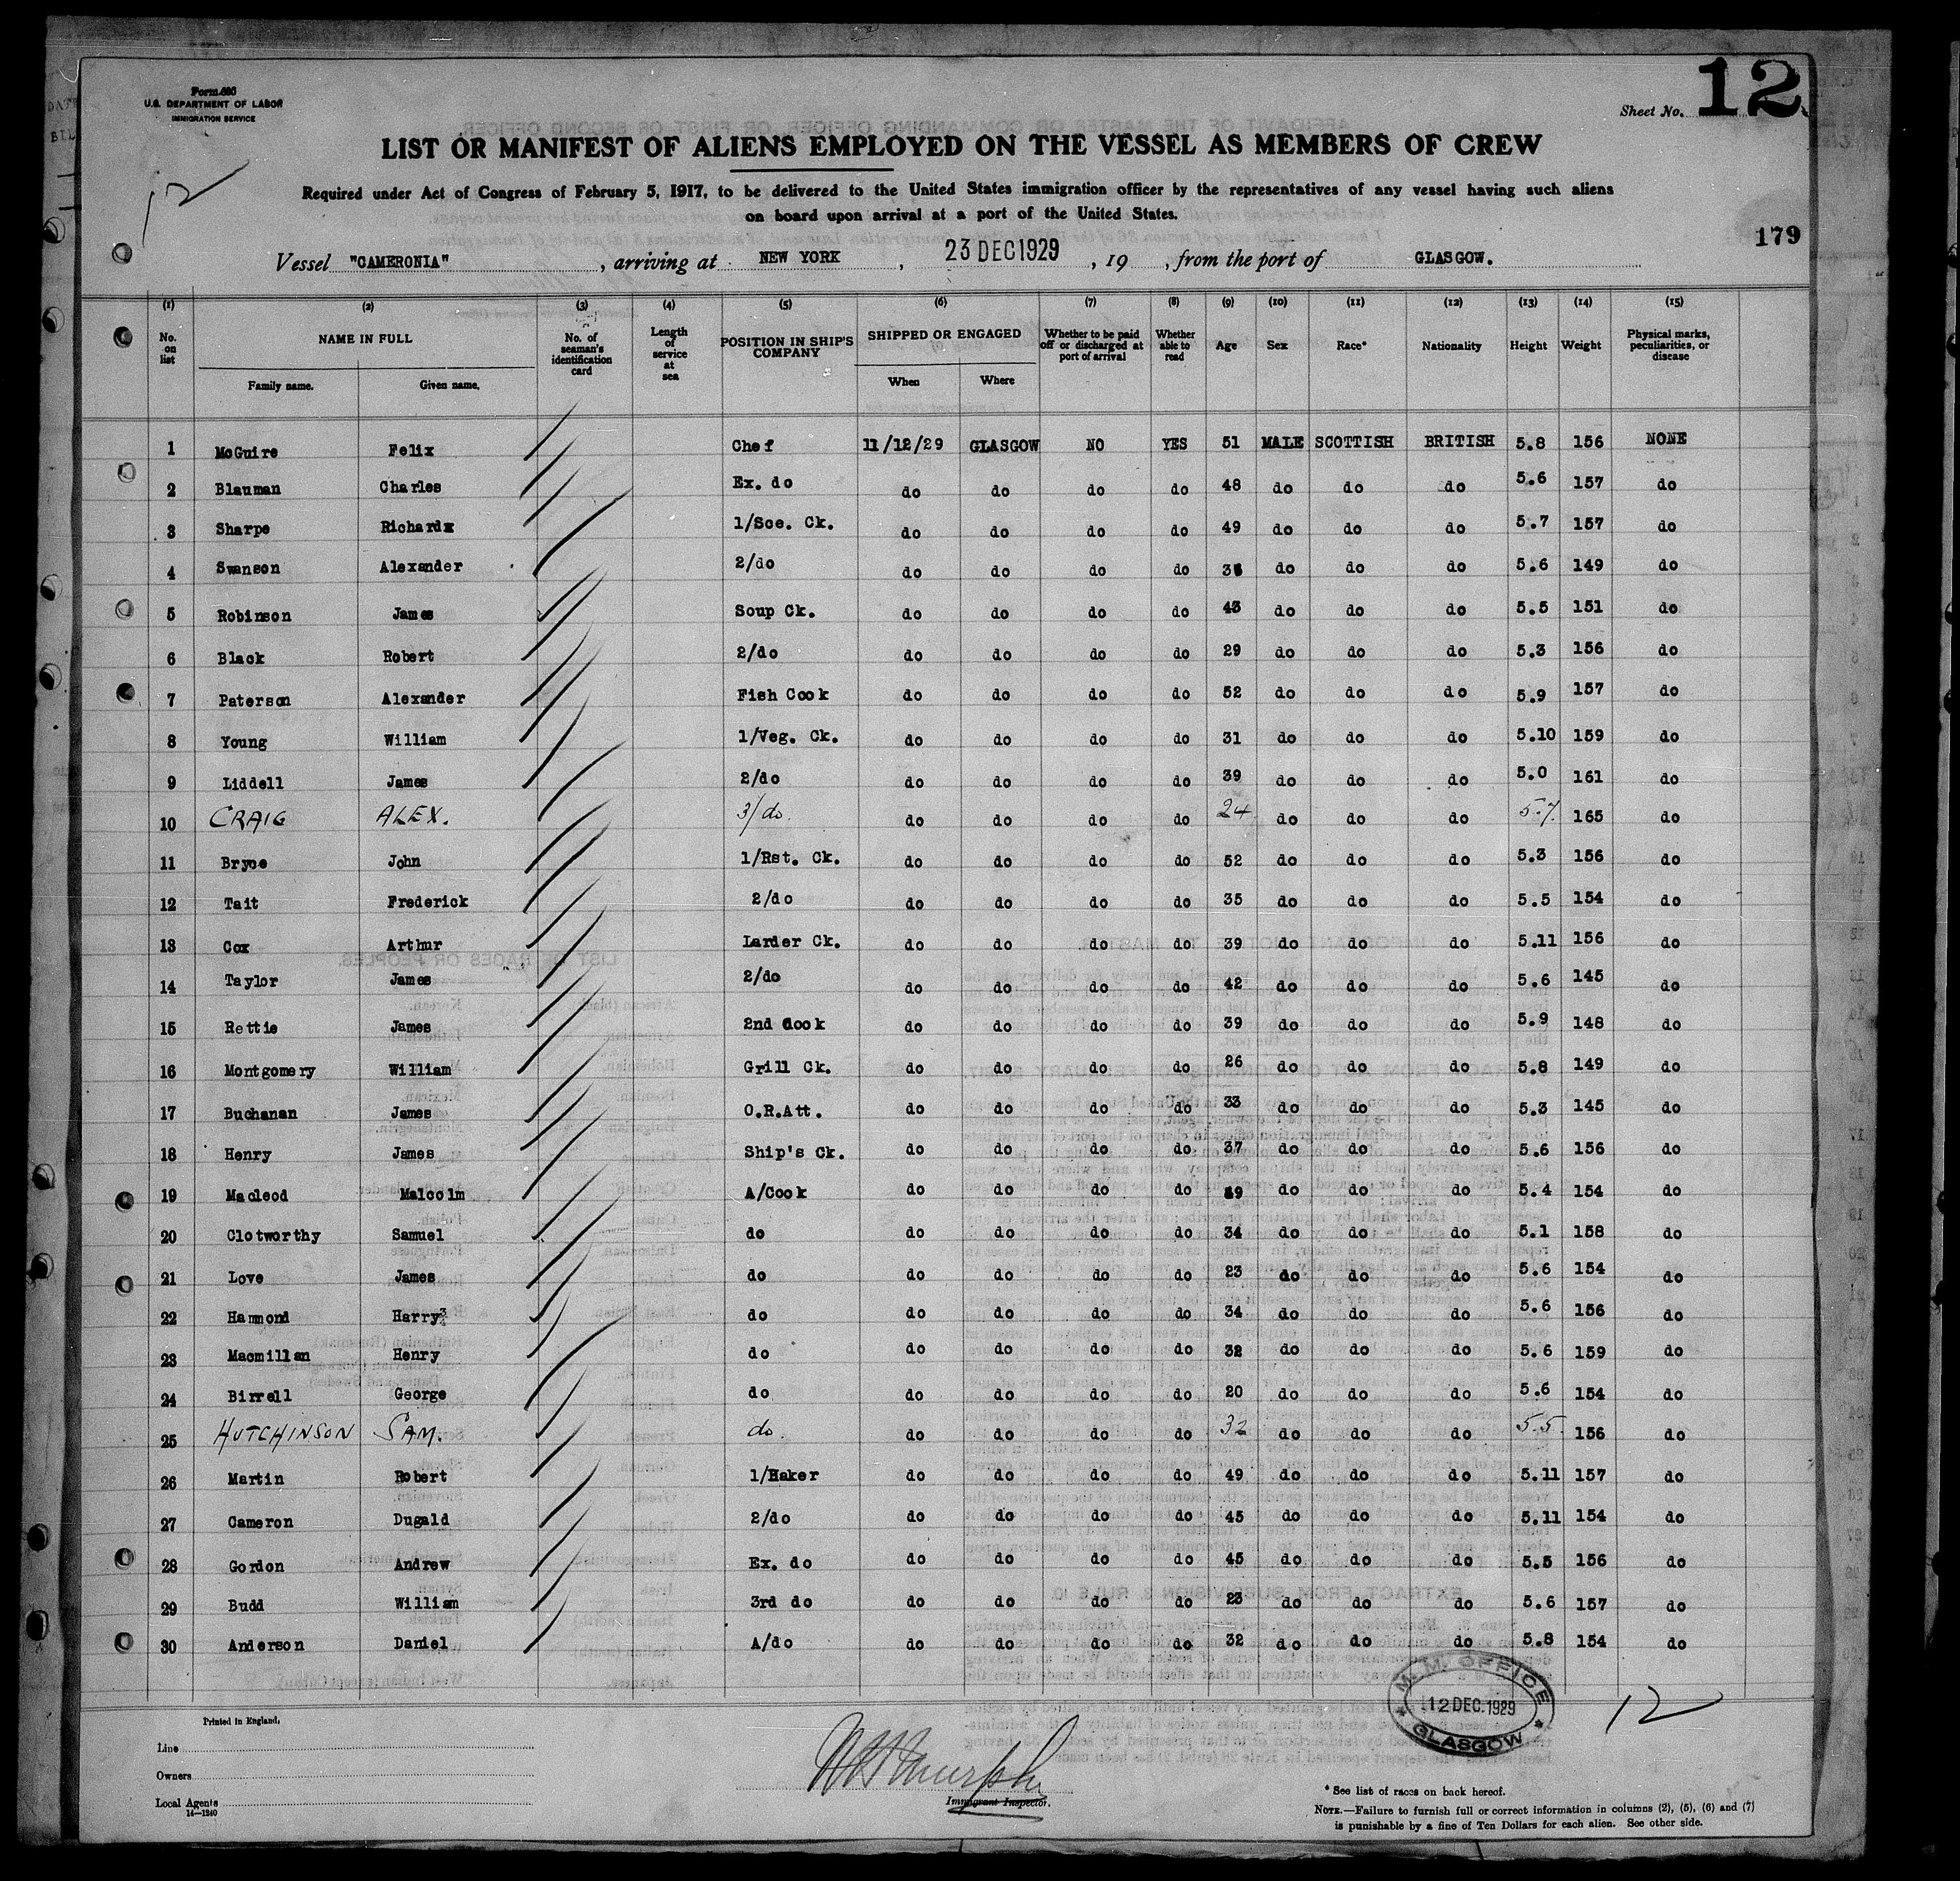 Form 680
U.S. DEPARTMENT OF LABOR
IMMIGRATION SERVICE
Sheet No. 12
LIST OR MANIFEST OF ALIENS EMPLOYED ON THE VESSEL AS MEMBERS OF CREW
12
Required under Act of Congress of February 5, 1917, to be delivered to the United States immigration officer by the representatives of any vessel having such aliens
on board upon arrival at a port of the United States.
179
Vessel "CAMERONIA", arriving at NEW YORK, 23 DEC 1929, 19 , from the port of GLASGOW.
(1) (2) (3) (4) (5) (6) (7) (8) (9) (10) (11) (12) (13) (14) (15)
No. on list NAME IN FULL Family name. Given name. No. of seaman's identification card Length of service at sea POSITION IN SHIP'S COMPANY SHIPPED OR ENGAGED When Where Whether to be paid off or discharged at port of arrival Whether able to read Age Sex Race* Nationality Height Weight Physical marks, peculiarities, or disease
1 McGuire Felix Chef 11/12/29 GLASGOW NO YES 51 MALE SCOTTISH BRITISH 5.8 156 NONE
2 Blauman Charles Ex. do do do do do 48 do do do 5.6 157 do
3 Sharpe Richard 1/Sce. Ck. do do do do 49 do do do 5.7 157 do
4 Swanson Alexander 2/do do do do do do do do 5.6 149 do
5 Robinson James Soup Ck. do do do do 43 do do do 5.5 151 do
6 Black Robert 2/do do do do do 29 do do do 5.3 156 do
7 Paterson Alexander Fish Cook do do do do 52 do do do 5.9 157 do
8 Young William 1/Veg. Ck. do do do do 31 do do do 5.10 159 do
9 Liddell James 2/do do do do do 39 do do do 5.0 161 do
10 CRAIG ALEX. 3/do. do do do do 24 do do do 5.7. 165 do
11 Bryce John 1/Rst. Ck. do do do do 52 do do do 5.3 156 do
12 Tait Frederick 2/do do do do do 35 do do do 5.5 154 do
13 Cox Arthur Larder Ck. do do do do 39 do do do 5.11 156 do
14 Taylor James 2/do do do do do 42 do do do 5.6 145 do
15 Rettie James 2nd Cook do do do do 39 do do do 5.9 148 do
16 Montgomery William Grill Ck. do do do do 26 do do do 5.8 149 do
17 Buchanan James O.R.Att. do do do do 33 do do do 5.3 145 do
18 Henry James Ship's Ck. do do do do 37 do do do 5.6 156 do
19 Macleod Malcolm A/Cook do do do do do do do 5.4 154 do
20 Clotworthy Samuel do do do do do 34 do do do 5.1 158 do
21 Love James do do do do do 23 do do do 5.6 154 do
22 Hammond Harry do do do do do 34 do do do 5.6 156 do
23 Macmillan Henry do do do do do 32 do do do 5.6 159 do
24 Birrell George do do do do do 20 do do do 5.6 154 do
25 HUTCHINSON SAM. do. do do do do 32 do do do 5.5. 156 do
26 Martin Robert 1/Baker do do do do 49 do do do 5.11 157 do
27 Cameron Dugald 2/do do do do do 45 do do do 5.11 154 do
28 Gordon Andrew Ex. do do do do do 45 do do do 5.5 156 do
29 Budd William 3rd do do do do do 23 do do do 5.6 157 do
30 Anderson Daniel A/do do do do do 32 do do do 5.8 154 do
M.M. OFFICE
12 DEC. 1929
GLASGOW
12
Printed in England.
Line
Owners
Local Agents
14—1240
Immigrant Inspector.
* See list of races on back hereof.
NOTE.—Failure to furnish full or correct information in columns (2), (5), (6) and (7)
is punishable by a fine of Ten Dollars for each alien. See other side.